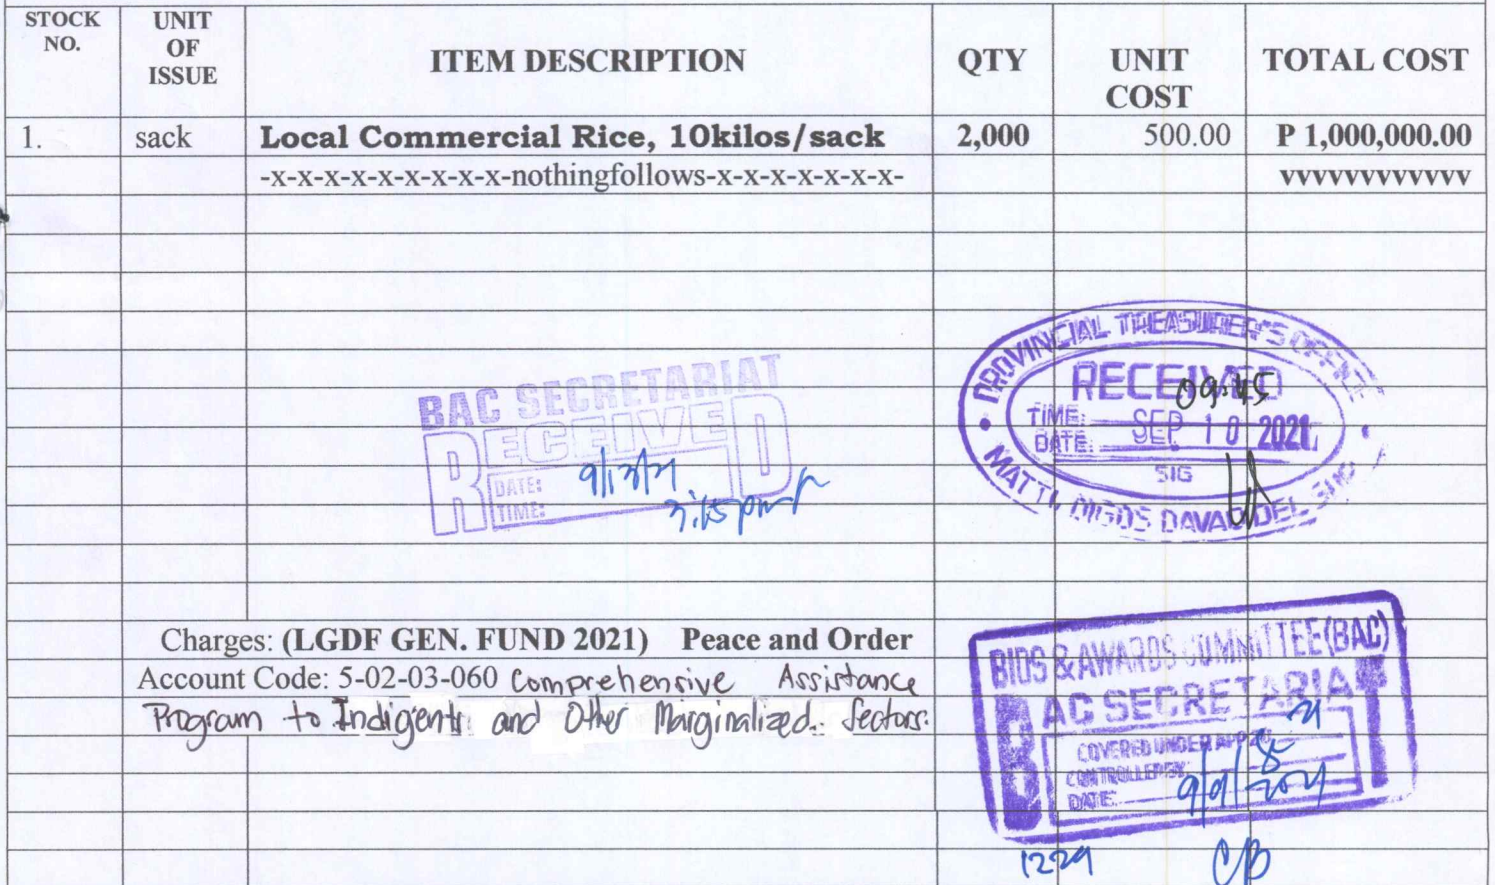 STOCK NO.
UNIT OF ISSUE
ITEM DESCRIPTION
QTY
UNIT COST
TOTAL COST
1. sack Local Commercial Rice, 10kilos/sack 2,000 500.00 P 1,000,000.00
-x-x-x-x-x-x-x-x-x-nothingfollows-x-x-x-x-x-x-x- vvvvvvvvvvvv
PROVINCIAL TREASURER'S OFFICE
RECEIVED
09:45
TIME:
DATE: SEP 10 2021
SIG
MATTI, DIGOS DAVAO DEL SUR
BAC SECRETARIAT
RECEIVED
DATE: 9/13/21
TIME: 3:15 pm
Charges: (LGDF GEN. FUND 2021) Peace and Order
Account Code: 5-02-03-060 Comprehensive Assistance
Program to Indigents and Other Marginalized Sectors.
BIDS & AWARDS COMMITTEE (BAC)
BAC SECRETARIAT
21
COVERED UNDER APP
CONTROLLED BY:
DATE: 9/9/2021
1229 CB